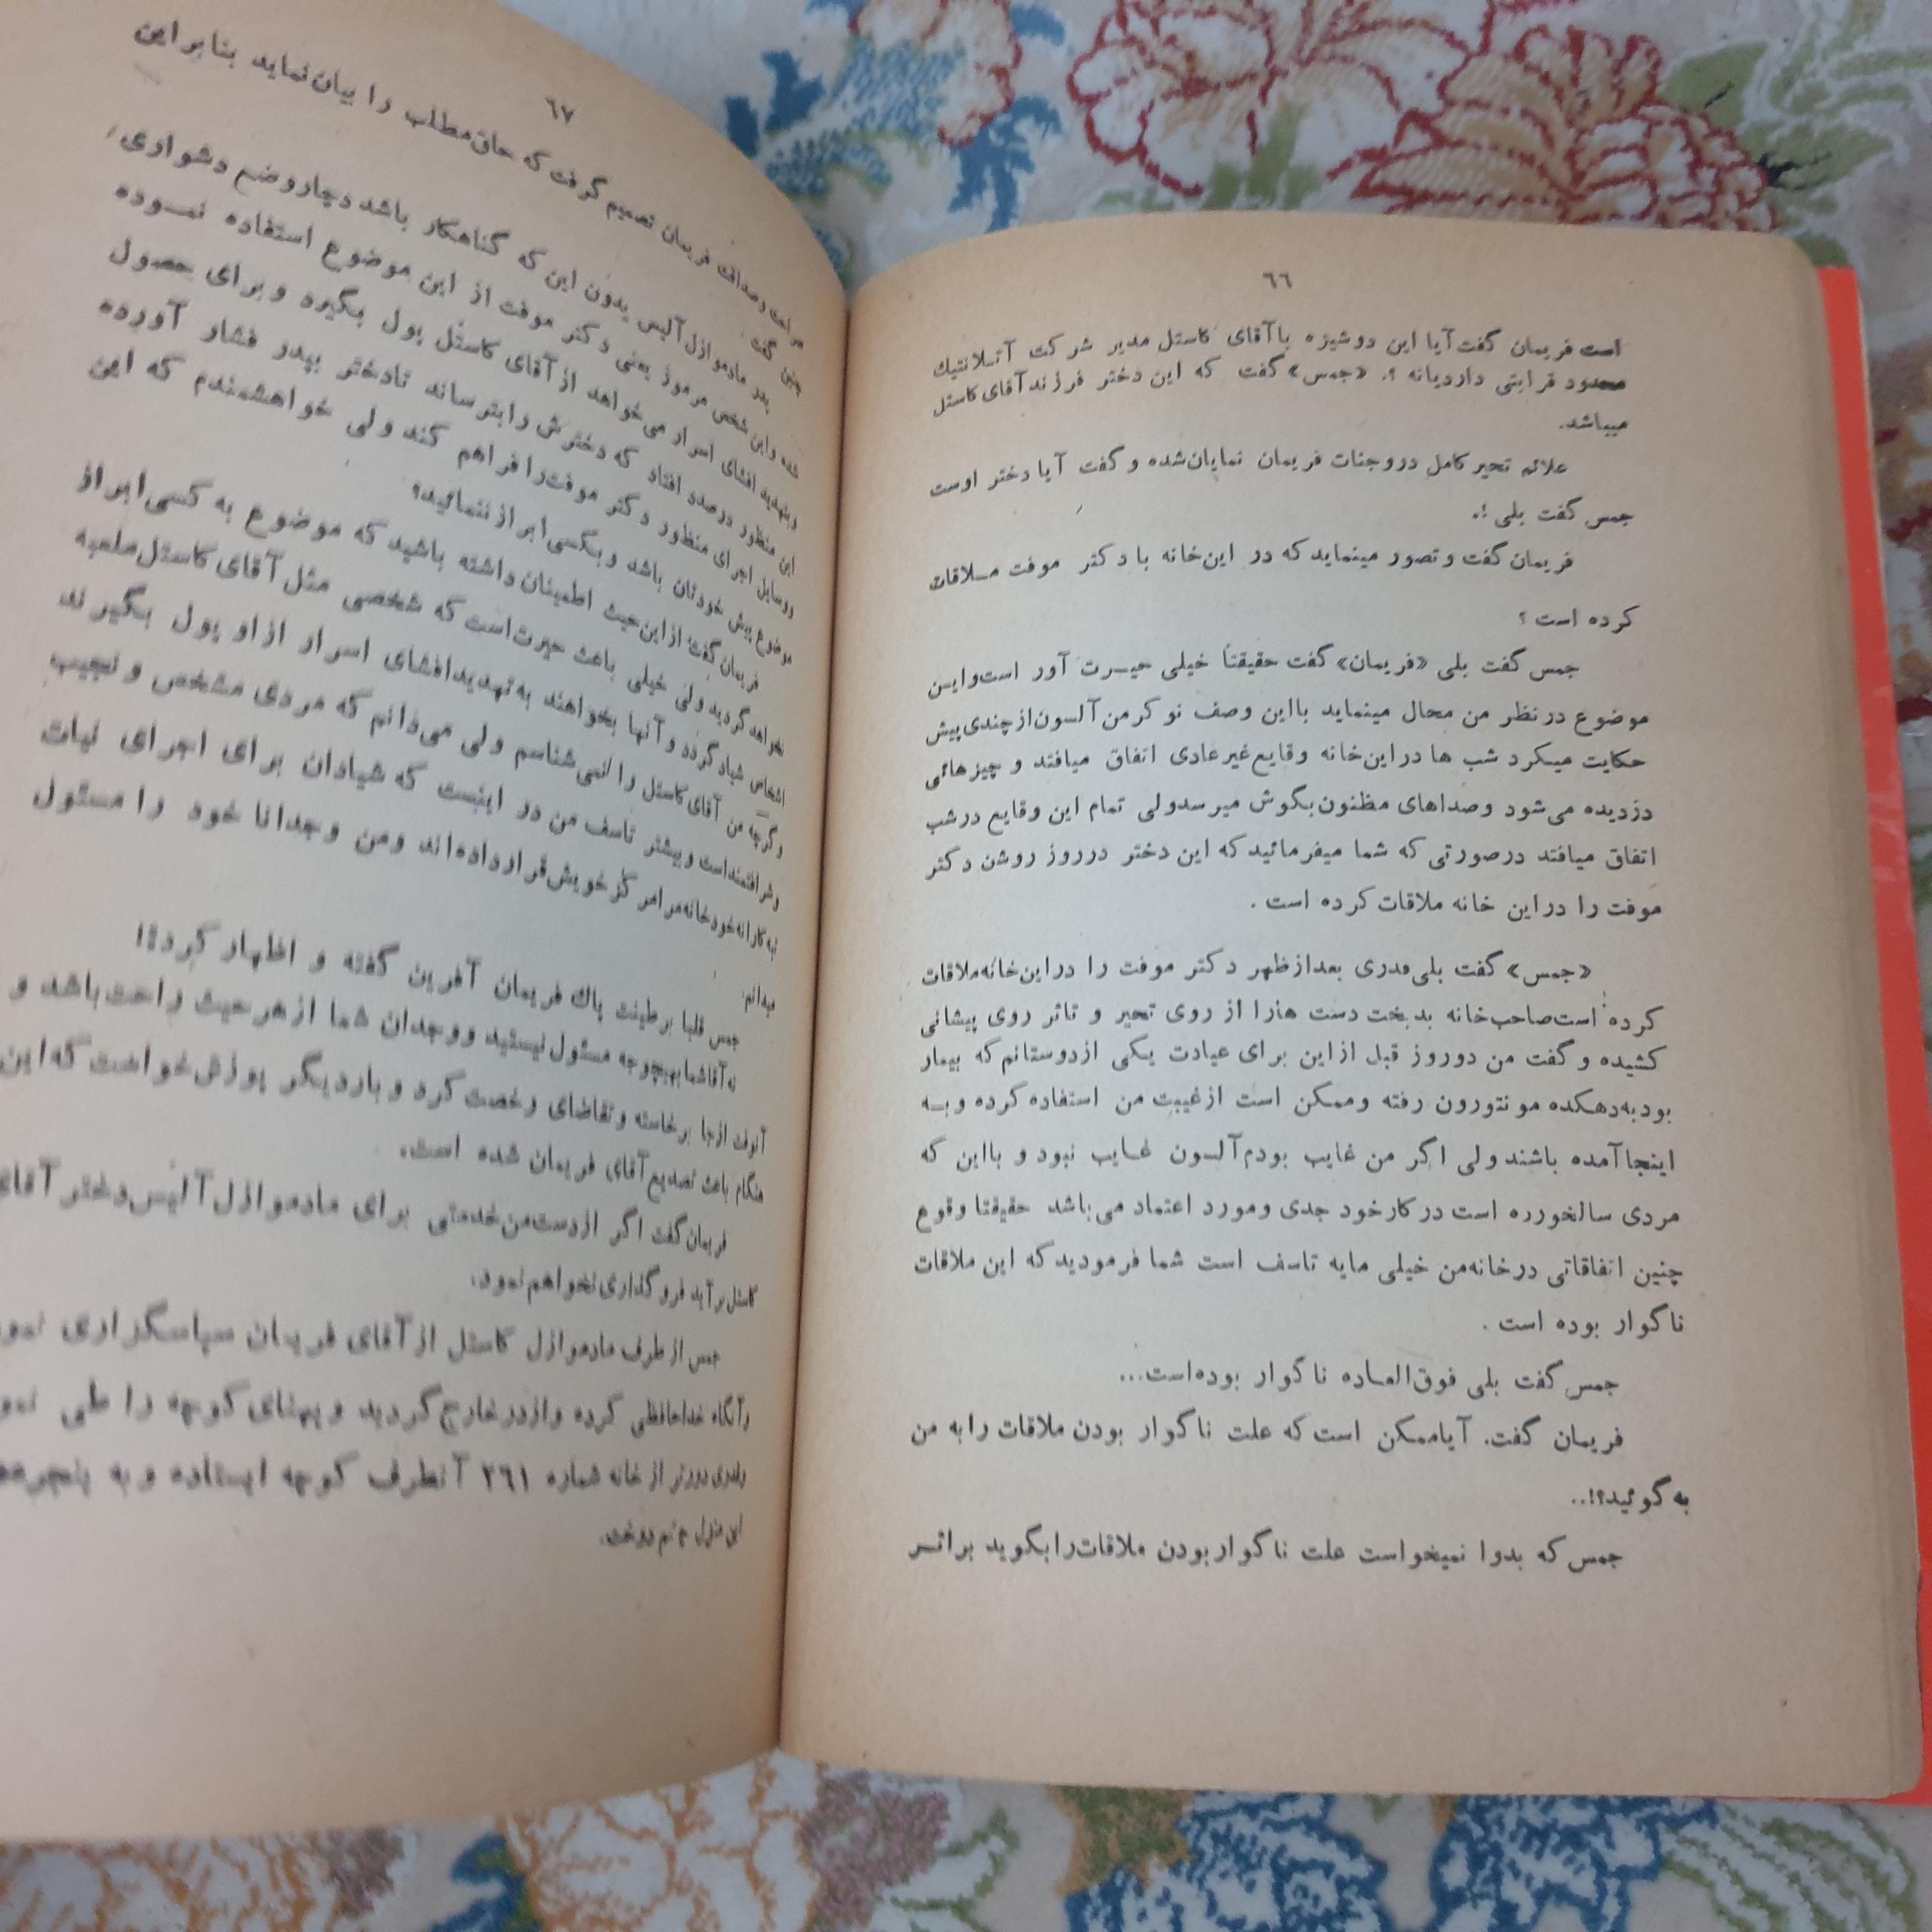 ٦٦
است فریمان گفت آیا این دوشیزه با آقای کاستل مدیر شرکت آتلانتیك
محدود قرابتی دارد یا نه ؟. «جمس» گفت که این دختر فرزند آقای کاستل
میباشد.
علائم تحیر کامل در وجنات فریمان نمایان شده و گفت آیا دختر اوست
جمس گفت بلی !.
فریمان گفت و تصور مینماید که در این خانه با دکتر موفت مـلاقات
کرده است ؟
جمس گفت بلی «فریمان» گفت حقیقتاً خیلی حیـرت آور است و ایـن
موضوع در نظر من محال مینماید با این وصف نوکر من آلسون از چندی پیش
حکایت میکرد شب ها در این خانه وقایع غیر عادی اتفاق میافتد و چیز هائی
دزدیده می‌شود و صداهای مظنون بگوش میرسد ولی تمام این وقایع در شب
اتفاق میافتد در صورتی که شما میفرمائید که این دختر در روز روشن دکتر
موفت را در این خانه ملاقات کرده است .
«جمس» گفت بلی قدری بعد از ظهر دکتر موفت را در این خانه ملاقات
کرده است صاحب خانه بدبخت دست ها را از روی تحیر و تاثر روی پیشانی
کشیده و گفت من دو روز قبل از این برای عیادت یکی از دوستانم که بیمار
بود به دهکده مونتورون رفته و ممکن است از غیبت من استفاده کرده و بـه
اینجا آمده باشند ولی اگر من غایب بودم آلسون غـایب نبود و با این که
مردی سالخورره است در کار خود جدی و مورد اعتماد می‌باشد حقیقتا وقوع
چنین اتفاقاتی در خانه من خیلی مایه تاسف است شما فرمودید که این ملاقات
ناگوار بوده است .
جمس گفت بلی فوق‌العـاده ناگوار بوده است...
فریمان گفت. آیا ممکن است که علت ناگوار بودن ملاقات را به من
به گوئید؟!..
جمس که بدوا نمیخواست علت ناگوار بودن ملاقات را بگوید بر اثـر
٦٧
صراحت و صداقت فریمان تصمیم گرفت که حاق مطلب را بیان نماید بنابراین
چنین گفت
پدر مادموازل آلیس بدون این که گناهکار باشد دچار وضع دشواری
شده و این شخص مرموز یعنی دکتر موفت از این موضوع استفاده نمـوده
و بتهدید افشای اسرار می‌خواهد از آقای کاستل پول بگیرد و برای حصول
این منظور در صدد افتاد که دخترش را بترساند تا دختر بپدر فشار آورده
و وسایل اجرای منظور دکتر موفت را فراهم کند ولی خواهشمندم که این
موضوع پیش خودتان باشد و بکسی ابراز ننمائید؟
فریمان گفت از این حیث اطمینان داشته باشید که موضوع به کسی ابراز
نخواهد گردید ولی خیلی باعث حیرت است که شخصی مثل آقای کاستل ملعبه
اشخاص شیاد گردد و آنها بخواهند به تهدید افشای اسرار از او پول بگیرند
و گرچه من آقای کاستل را نمی‌شناسم ولی می‌دانم که مردی مشخص و نجیب
و شرافتمند است و بیشتر تاسف من در اینست که شیادان برای اجرای نیات
تبه کارانه خود خانه مرا مرکز خویش قرار داده‌اند و من وجدانا خود را مسئول
میدانم.
جمس قلبا بر طینت پاك فریمان آفرین گفته و اظهار کرد:!
نه آقا شما بهیچوجه مسئول نیستید و وجدان شما از هر حیث راحت باشد و
آنوقت از جا برخاسته و تقاضای رخصت کرد و بار دیگر پوزش خواست که این
هنگام باعث تصدیع آقای فریمان شده است.
فریمان گفت اگر از دست من خدمتی برای مادموازل آلیس دختر آقای
کاستل بر آید فرو گذاری نخواهم نمود.
جمس از طرف مادموازل کاستل از آقای فریمان سپاسگزاری نمو
و آنگاه خداحافظی کرده و از در خارج گردید و پهنای کوچه را طی نمو
و قدری دورتر از خانه شماره ۲٦۱ آنطرف کوچه ایستاده و به پنجره
این منزل چشم دوخت.